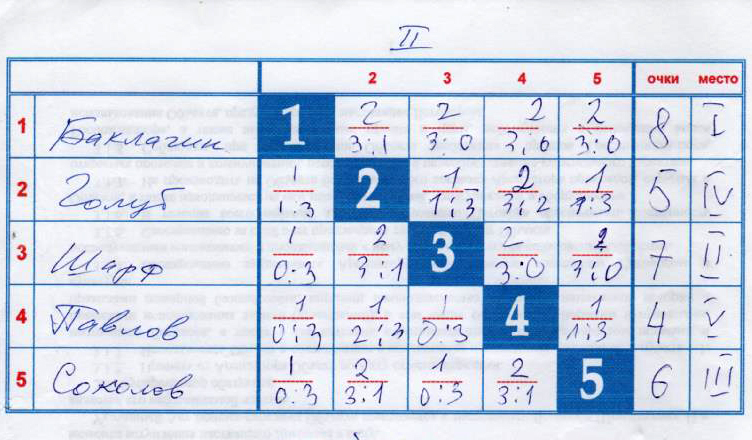 II
2 3 4 5 очки место
1 Баклагин 1 2 2 2 2 8 I
3:1 3:0 3:0 3:0
2 Голуб 1 2 1 2 1 5 IV
1:3 1:3 3:2 1:3
3 Шарф 1 2 3 2 2 7 II
0:3 3:1 3:0 3:0
4 Павлов 1 1 1 4 1 4 V
0:3 2:3 0:3 1:3
5 Соколов 1 2 1 2 5 6 III
0:3 3:1 0:3 3:1